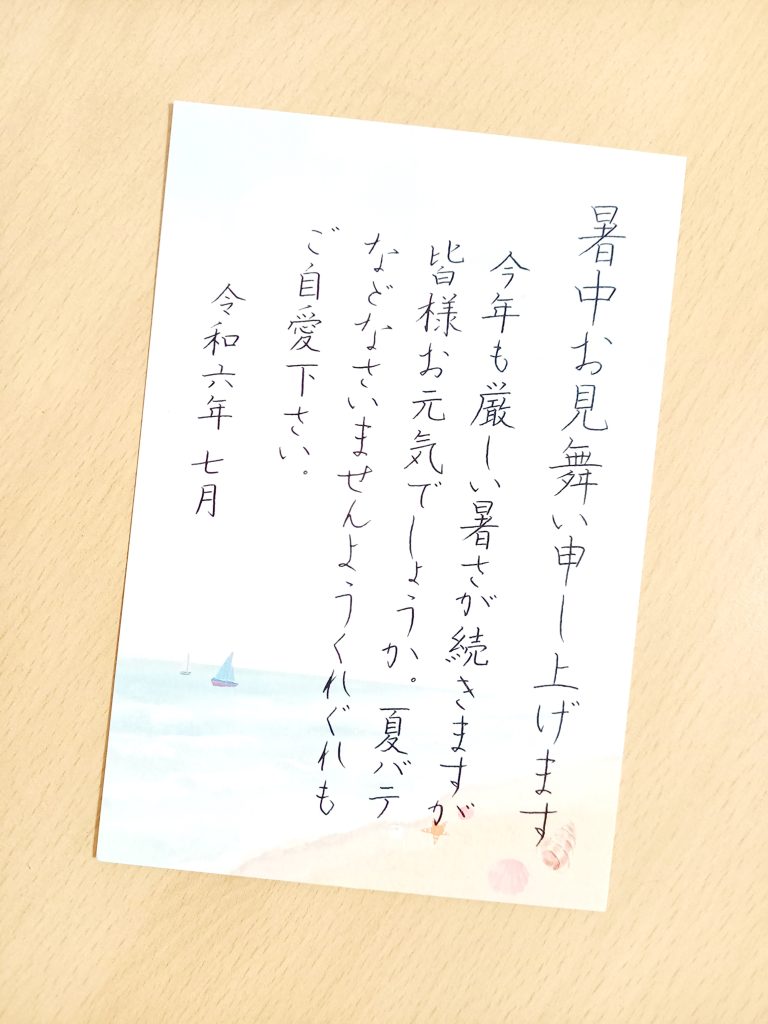 暑中お見舞い申し上げます
今年も厳しい暑さが続きますが
皆様お元気でしょうか。夏バテ
などなさいませんようくれぐれも
ご自愛下さい。
令和六年 七月